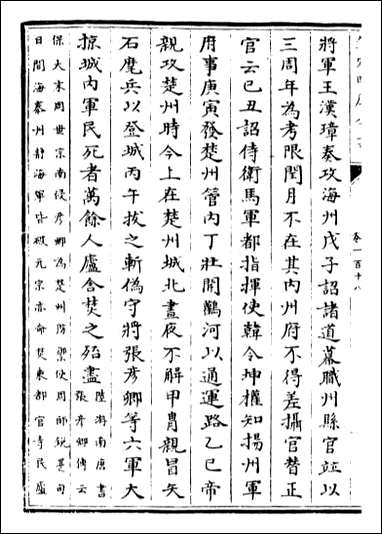 將軍王漢璋奏攻海州戊子詔諸道幕職州縣官竝以
三周年為考限閏月不在其內州府不得差攝官替正
官云己丑詔侍衛馬軍都指揮使韓令坤權知揚州軍
府事庚寅發楚州管內丁壯開鸛河以通運路乙巳帝
親攻楚州時今上在楚州城北晝夜不解甲冑親冒矢
石麾兵以登城丙午拔之斬偽守將張彥卿等六軍大
掠城內軍民死者萬餘人廬舍焚之殆盡陸游南唐書張彥卿傳云
保大末周世宗南侵彥卿為楚州防禦使周師銳甚旬
日間海泰州靜海軍皆破元宗亦命焚東都官寺民廬
卷一百十八